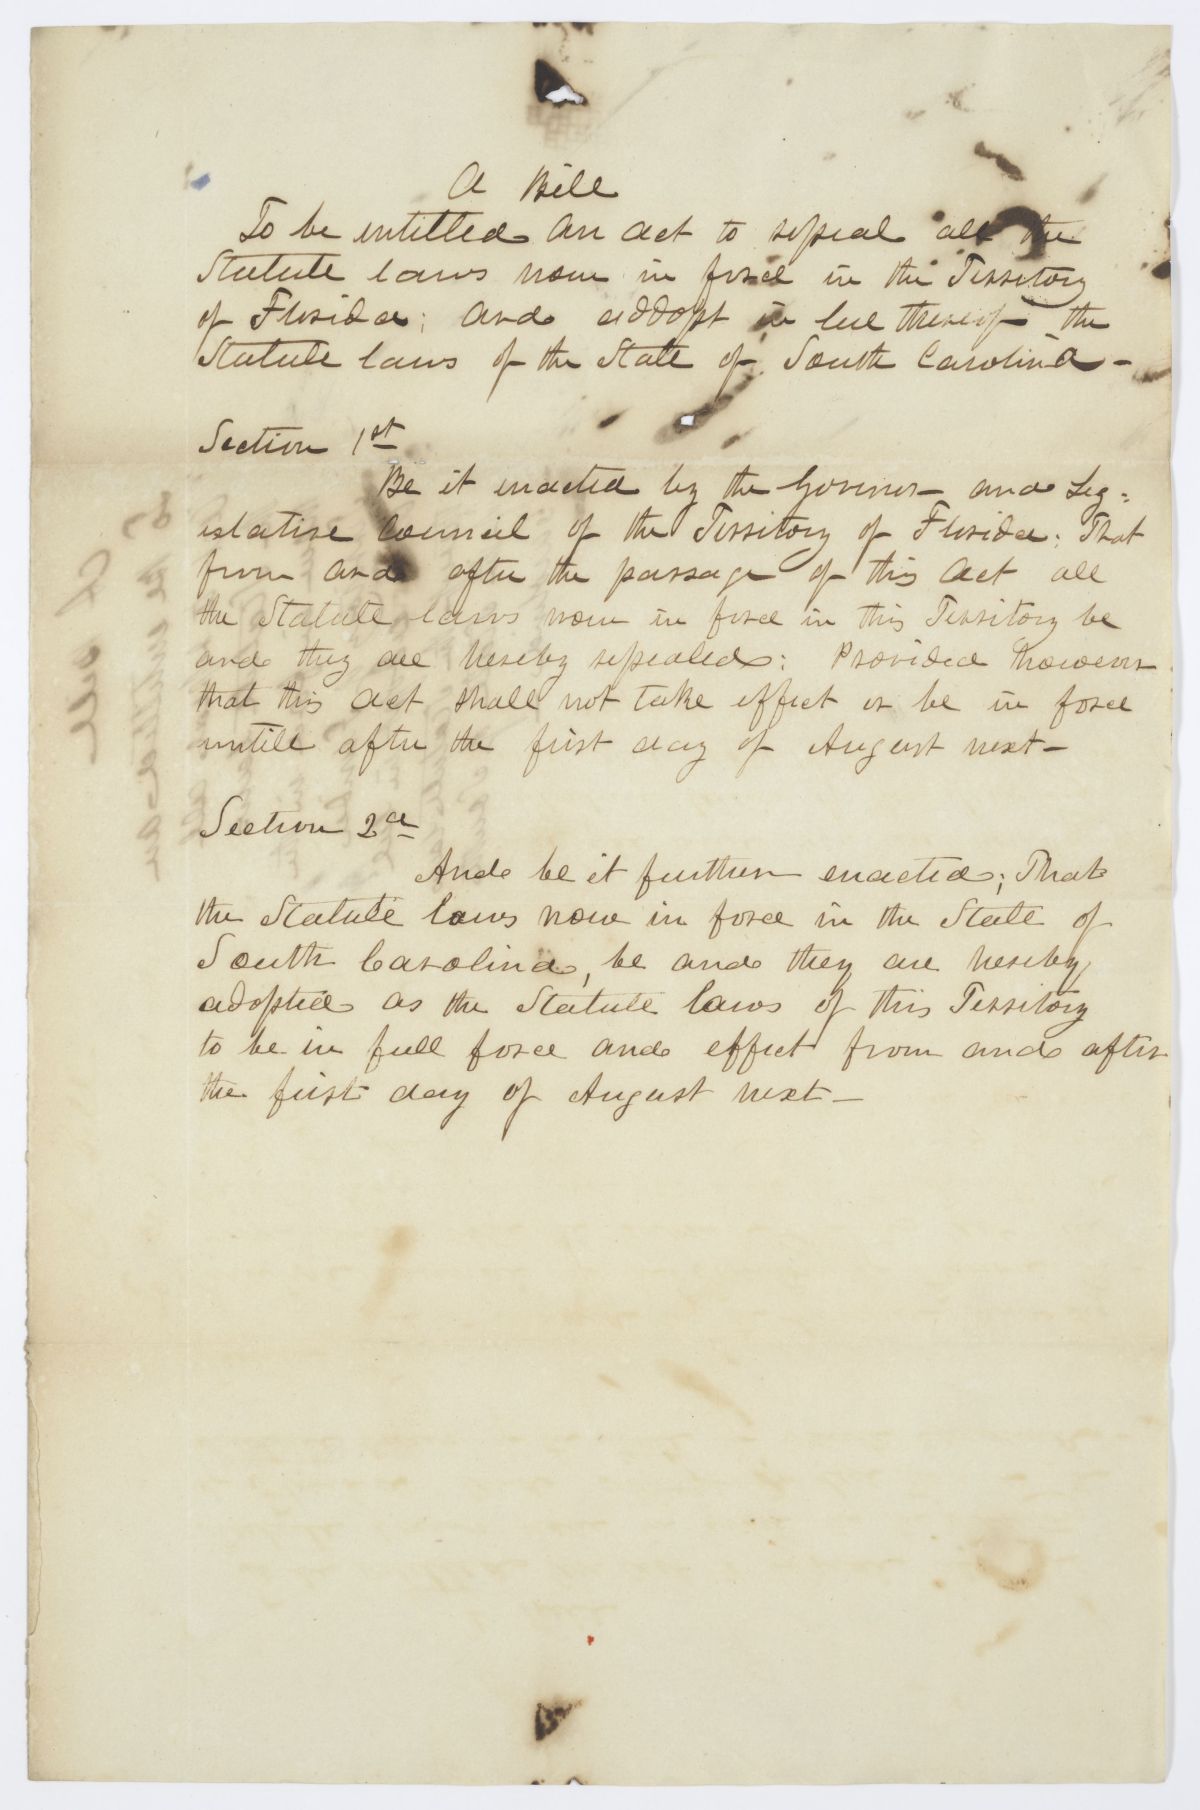 A Bill
To be intitled An act to repeal all the
Statute laws now in force in the Territory
of Florida; And addopt in lue thereof the
Statute laws of the State of South Carolina-
Section 1st
Be it enacted by the Govenor and Leg=
islative Council of the Territory of Florida; That
from and after the passage of this Act all
the Statute laws now in force in this Territory be
and they are hereby repealed: Provided however
that this act shall not take effect or be in force
untill after the first day of August next-
Section 2d
And be it further enacted; That
the Statute laws now in force in the State of
South Carolina, be and they are hereby
adopted as the Statute laws of this Territory
to be in full force and effect from and after
the first day of August next-